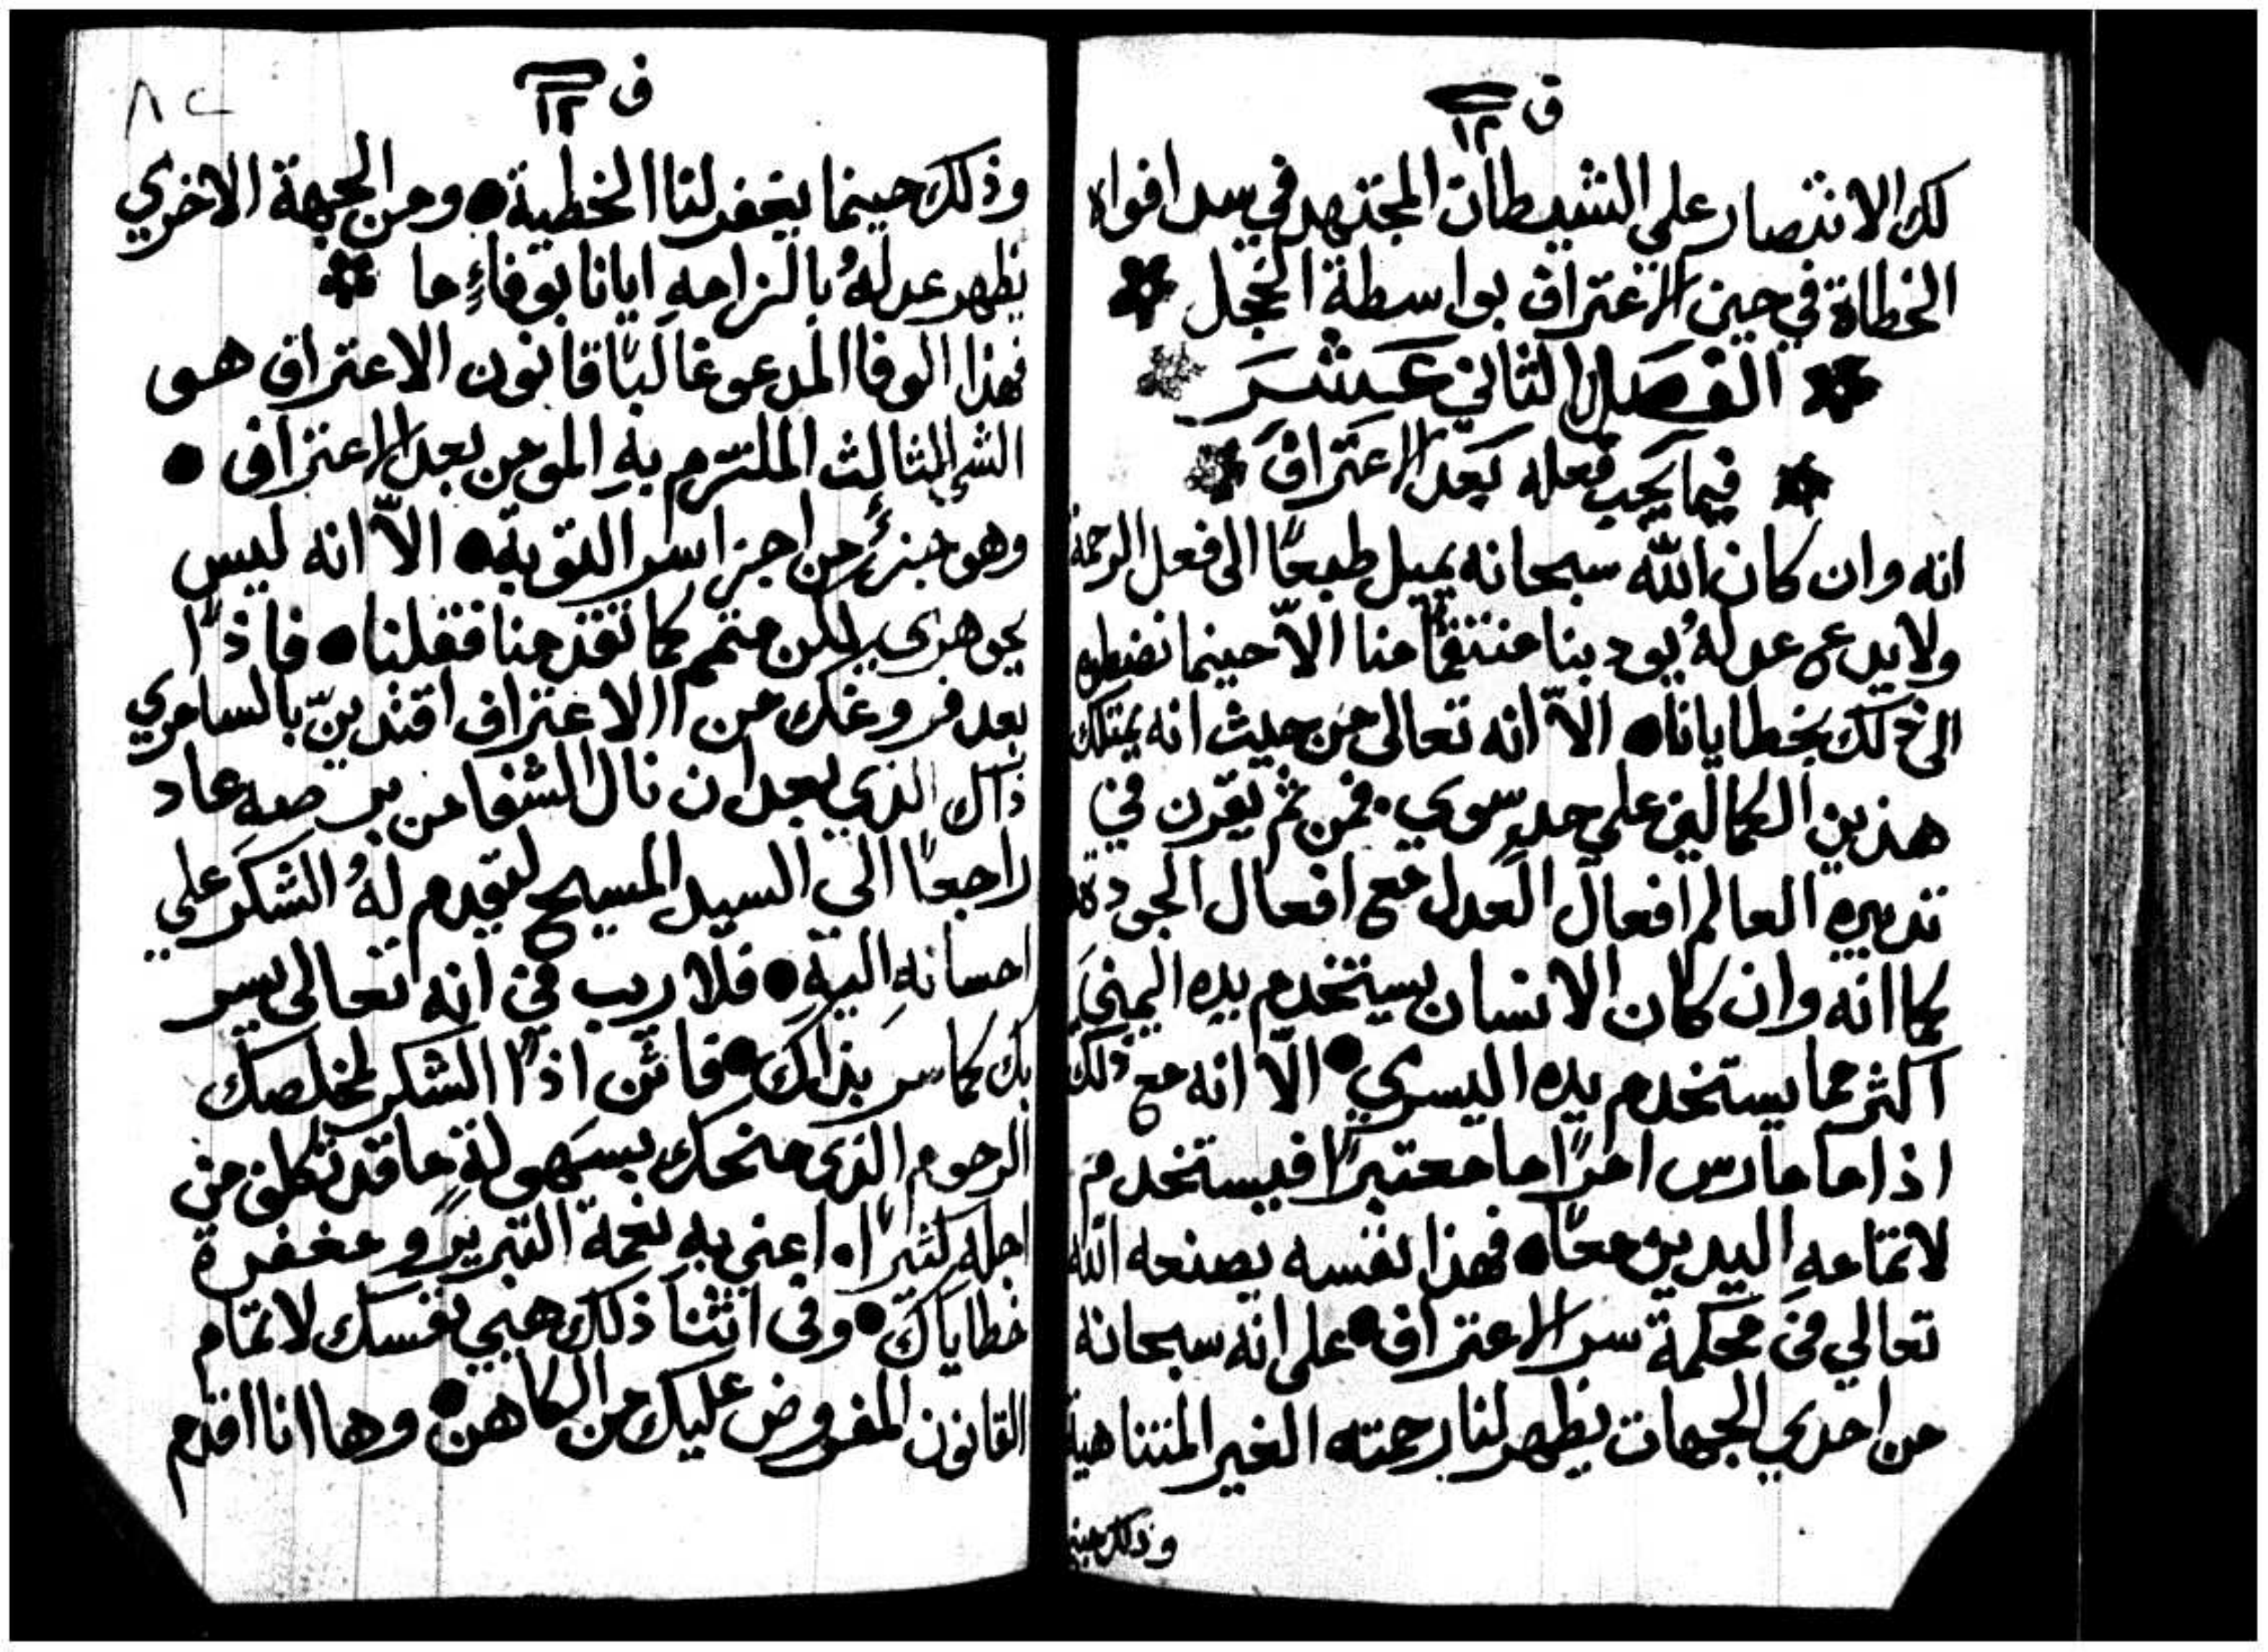 ق ١٢
لك الانتصار علي الشيطان المجتهد في سد افواه
الخطاة في حين الاعتراف بواسطة الخجل
الفصل الثاني عشر
فيما يجب فعله بعد الاعتراف
انه وان كان الله سبحانه يميل طبعًا الى فعل الرحمة
ولا يدع عدلهُ يودبنا منتقمًا منا الاّ حينما نضطره
الى ذلك بخطايانا ● الاّ انه تعالى من حيث انه يمتلك
هذين الكمالين على حدٍ سوي. فمن ثم يقرن في
تدبيره العالم افعال العدل مع افعال الجودة
كما انه وان كان الانسان يستخدم يده اليمني
اكثر مما يستخدم يده اليسري ● الاّ انه مع ذلك
اذا ما مارس امرًا ما معتبرًا فيستخدم
لاتمامهِ اليدين معًا ● فهذا نفسه يصنعه الله
تعالي في محكمة سر الاعتراف ● على انه سبحانه
من احدي الجهات يظهر لنا رحمته الغير المتناهية
وذلك حينما
ق ١٢
٨٢
وذلك حينما يغفر لنا الخطية ● ومن الجهة الاخري
يظهر عدلهُ بالزامهِ ايانا بوفاءٍ ما
فهذا الوفا المدعو غالبًا قانون الاعتراف هو
الشي الثالث الملتزم بهِ المومن بعد الاعتراف ●
وهو جزءٌ من اجزا سر التوبة ● الاّ انه ليس
بجوهري بل متمم كما تقدم منا فقلنا ● فاذًا
بعد فروغك من الاعتراف اقتدينّ بالسامري
ذاك الذي بعد ان نال الشفا من برصه عاد
راجعًا الي السيد المسيح ليقدم لهُ الشكر علي
احسانهِ اليهِ ● فلا ريب في انه تعالى يسر
بك كما سر بذاك ● فاتن اذًا الشكر لمخلصك
الرحوم الذي منحك بسهولةٍ ما قد تكلف من
اجله كثيرًا. اعني به نعمة التبرير و مغفرة
خطاياك ● وفى اثنا ذلك هيي نفسك لاتمام
القانون المفروض عليك من الكاهن ● وها انا اقدم